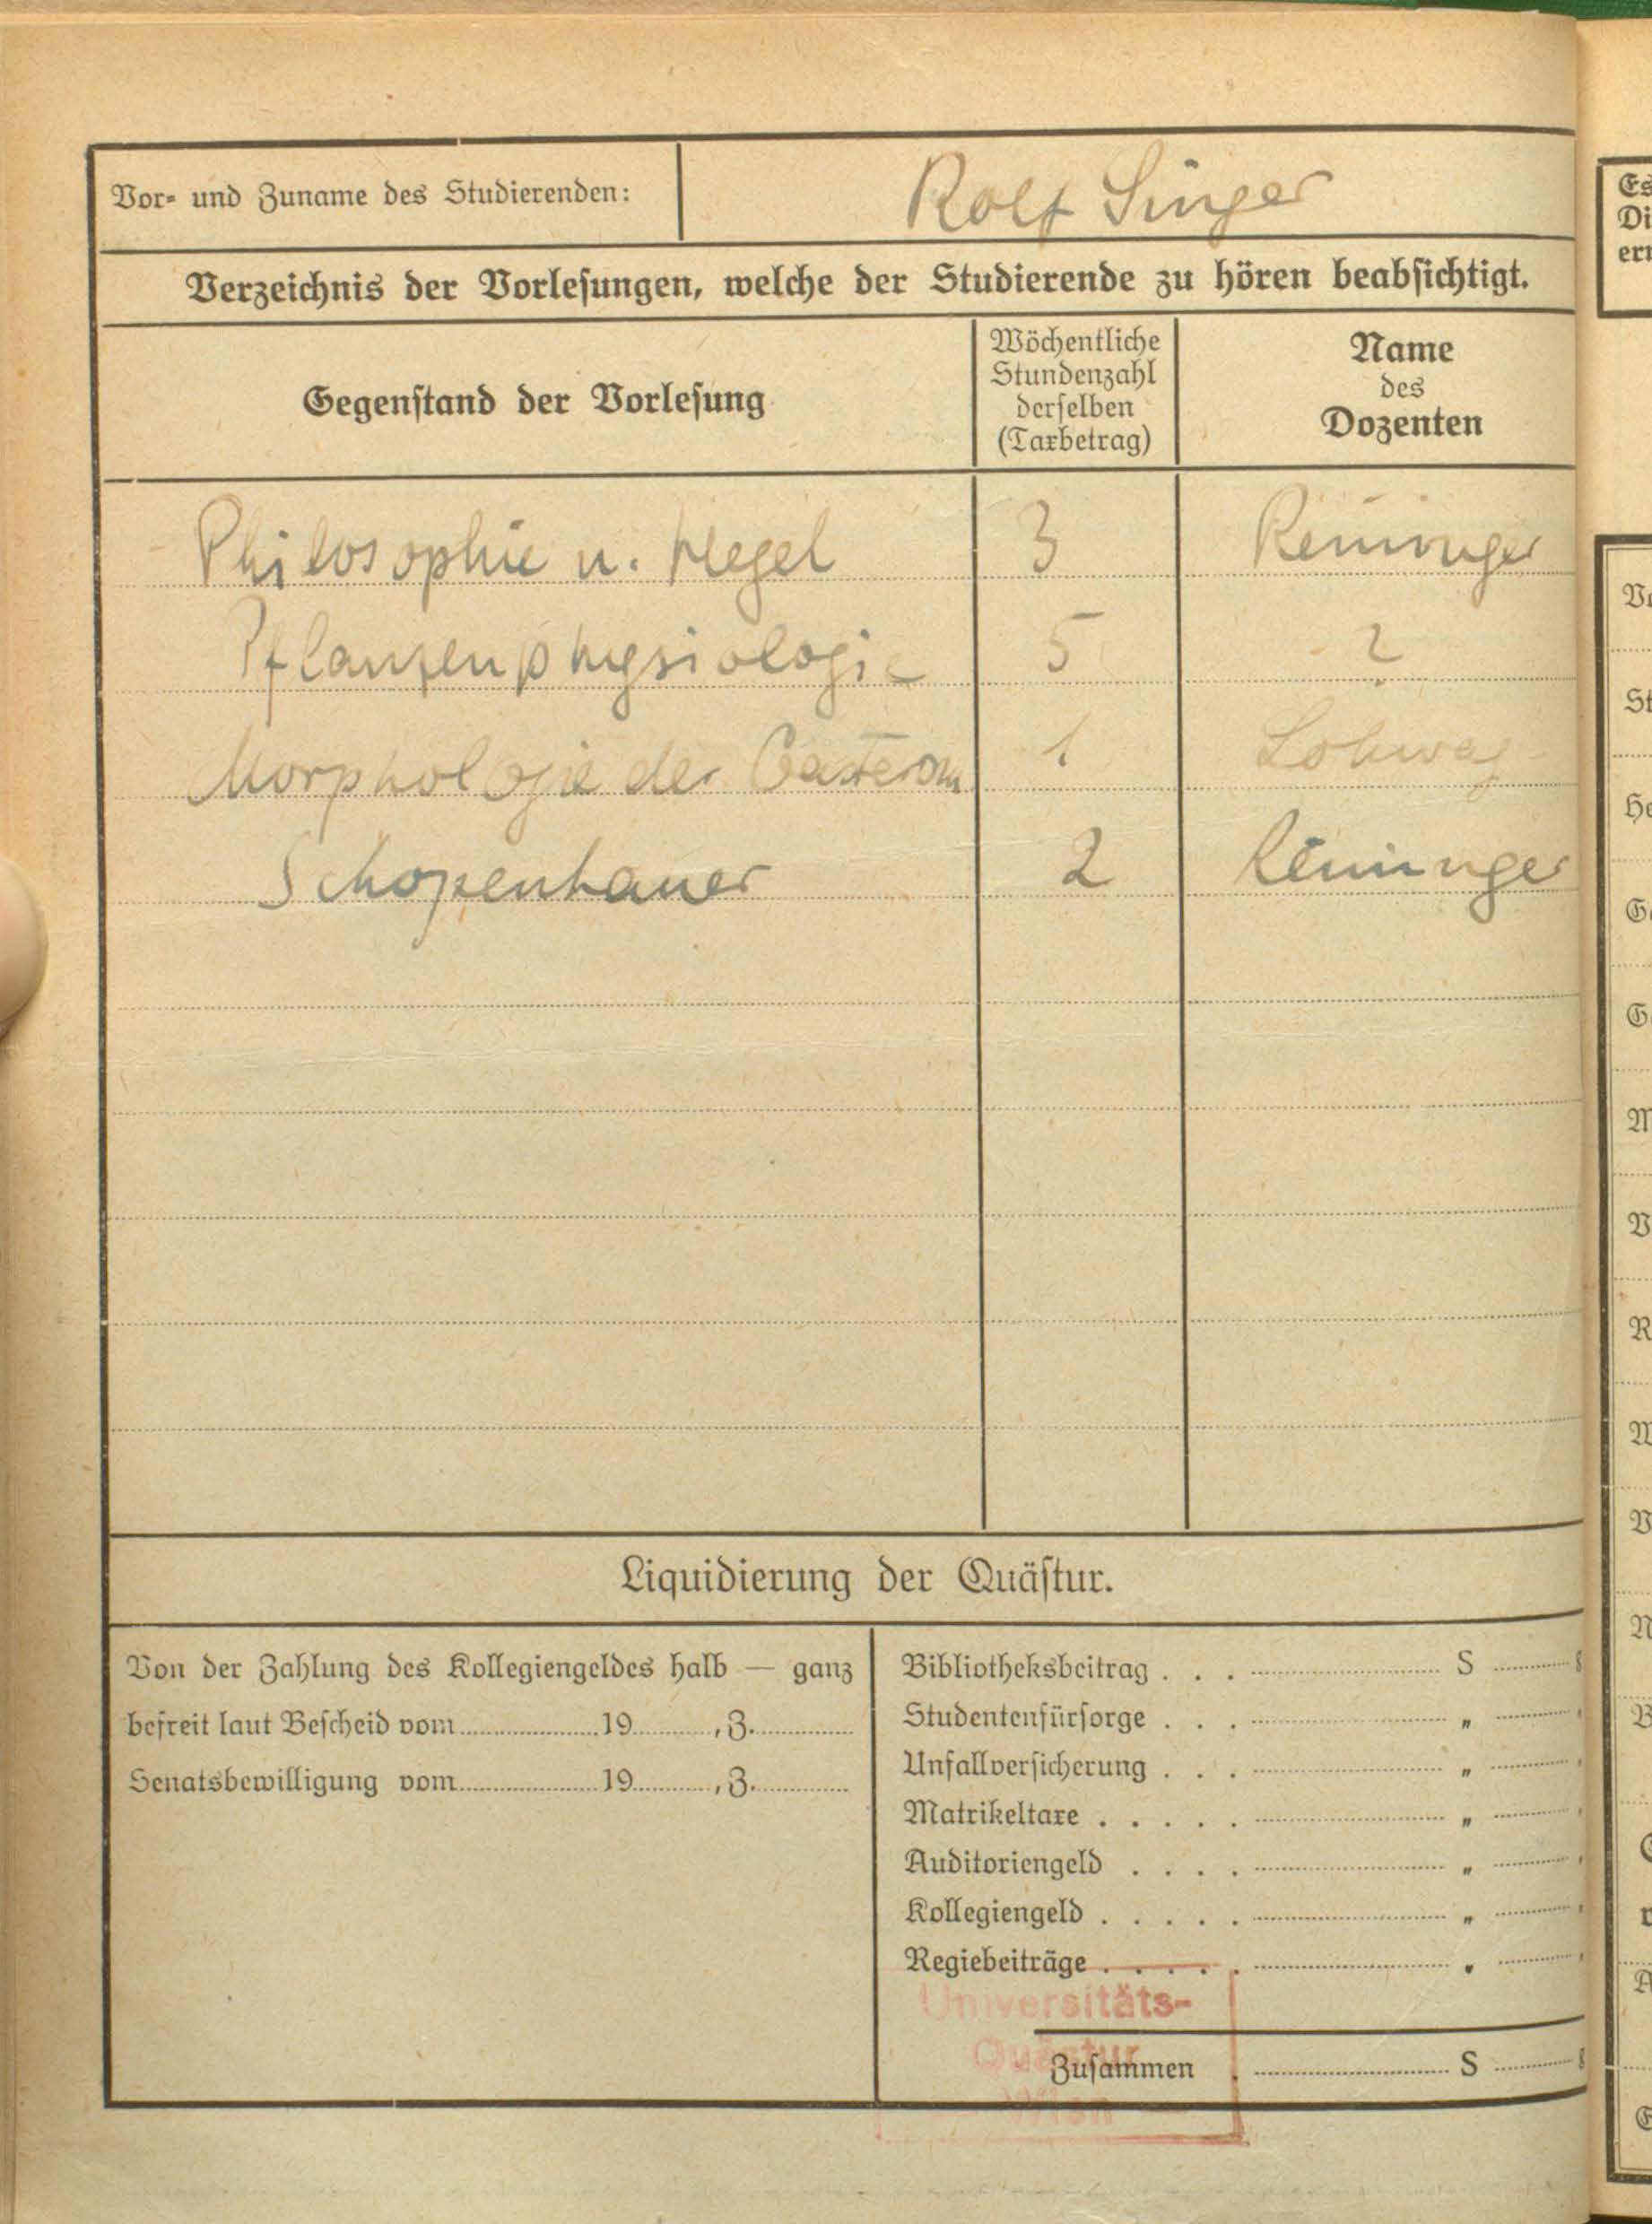 Vor- und Zuname des Studierenden:
Rolf Singer
Verzeichnis der Vorlesungen, welche der Studierende zu hören beabsichtigt.
Gegenstand der Vorlesung
Wöchentliche
Stundenzahl
derselben
(Taxbetrag)
Name
des
Dozenten
Philosophie n. Hegel 3 Reininger
Pflanzenphysiologie 5 ?
Morphologie der Gasterom. 1 Lohwag
Schopenhauer 2 Reininger
Liquidierung der Quästur.
Von der Zahlung des Kollegiengeldes halb — ganz
befreit laut Bescheid vom 19 , Z.
Senatsbewilligung vom 19 , Z.
Bibliotheksbeitrag . . . S
Studentenfürsorge . . . "
Unfallversicherung . . . "
Matrikeltaxe . . . . . "
Auditoriengeld . . . . "
Kollegiengeld . . . . . "
Regiebeiträge . . . . . "
Universitäts-
Quästur
Wien
Zusammen . S